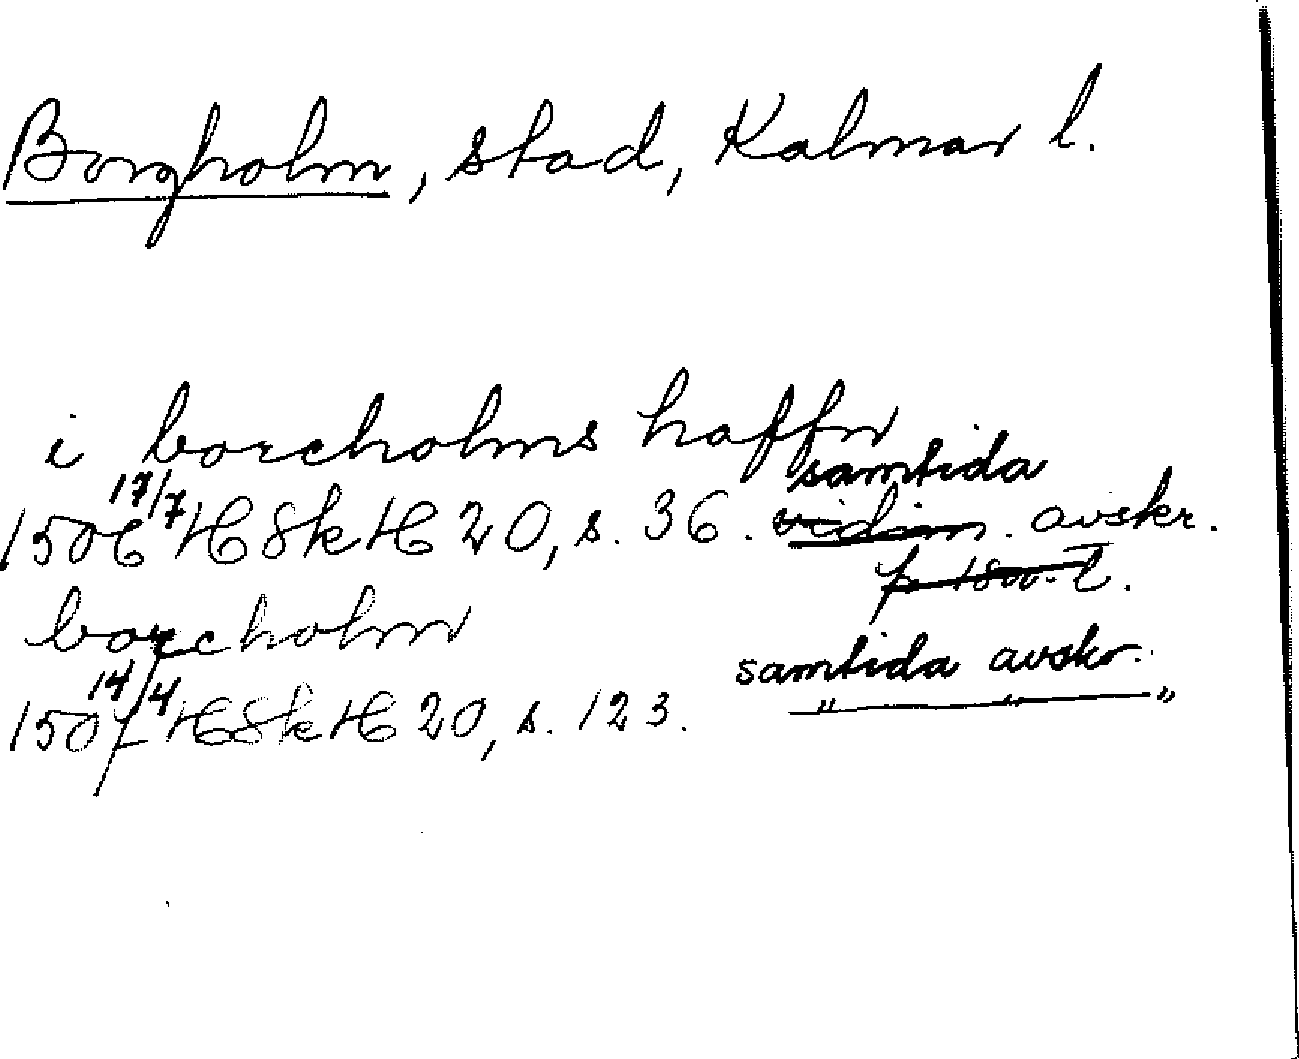 Borgholm, stad, Kalmar l.
i borcholms haffn
1506 17/7 HSkH 20, s. 36. samtida avskr.
borcholm
1507 14/4 HSkH 20, s. 123. samtida avskr.